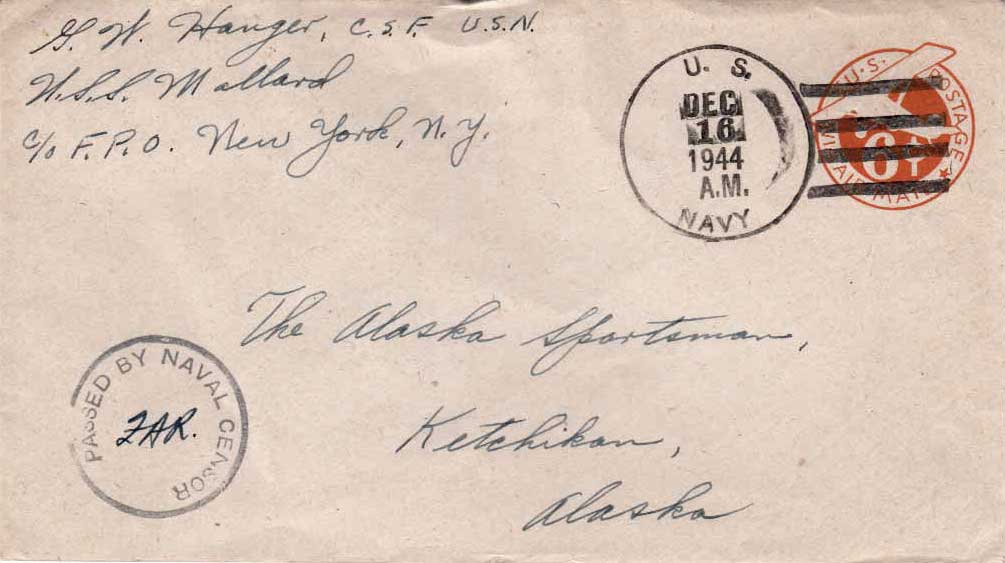 G. W. Hanger, C.S.F. U.S.N.
U.S.S. Mallard
c/o F.P.O. New York, N.Y.
U. S.
DEC
16
1944
A.M.
NAVY
U.S. POSTAGE
6¢
VIA AIR MAIL
The Alaska Sportsman,
Ketchikan,
Alaska
PASSED BY NAVAL CENSOR